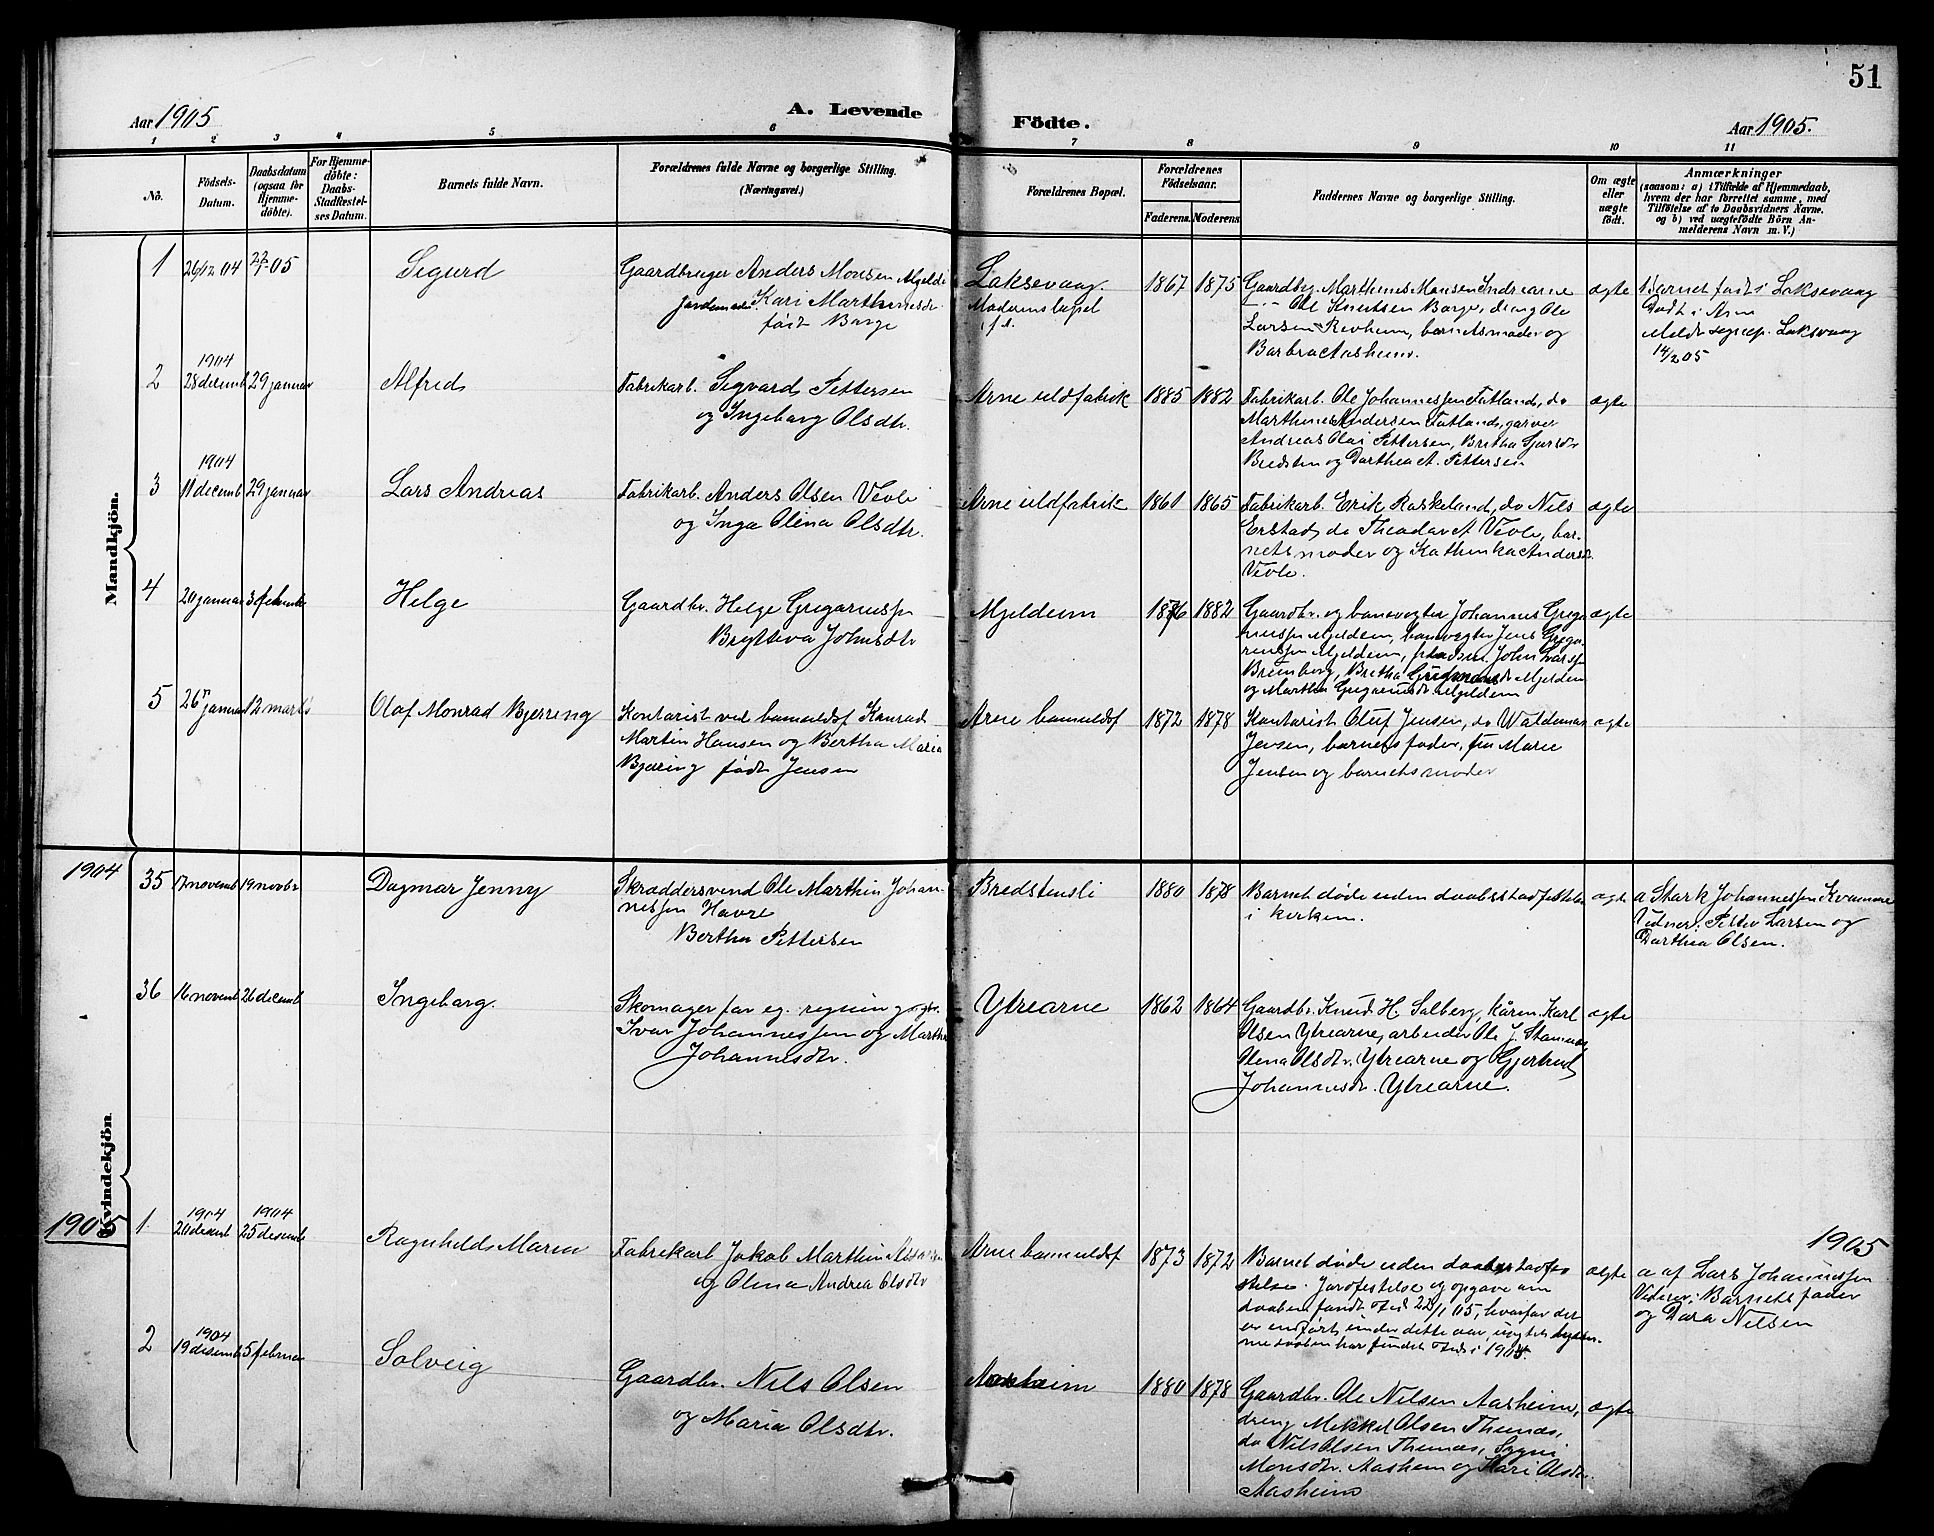 51
Aar 1905
A. Levende
Födte.
Aar 1905.
1 2 3 4 5 6 7 8 9 10 11
No.
Födsels-
Datum.
Daabsdatum
(ogsaa for
Hjemme-
döbte).
For Hjemme-
döbte:
Daabs-
Stadfæstel-
ses Datum.
Barnets fulde Navn.
Forældrenes fulde Navne og borgerlige Stilling.
(Næringsvei.)
Forældrenes Bopæl.
Forældrenes
Födselsaar.
Faderens.
Moderens.
Faddernes Navne og borgerlige Stilling.
Om ægte
eller
uægte
födt.
Anmærkninger
(saasom: a) i Tilfælde af Hjemmedaab,
hvem der har forrettet samme, med
Tilföielse af to Daabsvidners Navne,
og b) ved uægtefödte Börn An-
melderens Navn m. V.)
Mandkjön.
1
26/12 04
22/1 05
Sigurd
Gaardbruger Anders Monsen Mjelde
Kari Marthinusdr
født Borge
Laksevaag.
Moderens bopel
1867
1875
Gaardbr. Marthinus Monsen Indrearne
Ole Knutsen Borge, dreng Ole
Larsen Revheim, barnets moder og
Barbra Aasheim.
ægte
Barnet født i Laksevaag
Døbt i Arne
Meldt sognep. Laksevaag
14/2 05
2
1904
28 decemb
29 januar
Alfred
Fabrikarb. Sigvard Pettersen
og Ingeborg Olsdtr.
Arne uldfabrik
1885
1882
Fabrikarb. Ole Johannessen Fatland, do
Marthinus Andersen Fatland, garver
Andreas Olai Pettersen, Britha Sjursdr
Bredsten og Dorthea A. Pettersen
ægte
3
1904
11 decemb
29 januar
Lars Andreas
Fabrikarb. Anders Olsen Vevle
og Inga Olina Olsdtr.
Arne uldfabrik
1861
1865
Fabrikarb. Erik Raskeland, do Nils
Erstad, do Theodor A Vevle, bar-
nets moder og Kathinka Anders
Vevle.
ægte
4
20 januar
3 februar
Helge
Gaardbr. Helge Gregoriussn
Brytteva Johnsdtr
Mjeldeim
1882
Gaardbr. og banevogter Johannes Greg
riussn Mjeldem, banevogter Jens Grego
riussen Mjeldem, John Larssn
Breinborg, Britha Mjeldem
og Martha Gregoriusdr Mjeldem
ægte
5
26 januar
12 marts
Olaf Monrad Bjerring
Kontorist ved bomuldsf Konrad
Martin Hansen og Bertha Maria
Bjerring født Jensen
Arne bomuldsf
1872
1878
Kontorist Oluf Jensen, do Waldemar
Jensen, barnets fader, fru Marie
Jensen og barnets moder
ægte
Kvindekjön.
1904
35
17 novemb
19 novbr
Dagmar Jenny
Skræddersvend Ole Marthin Johan-
nessen Havre
Bertha Pettersen
Bredstensli
1880
1878
Barnet døde uden daabsstadfestelse
i kirken.
ægte
a Stark Johannessen Kvamme
Vidner: Petter Larsen og
Dorthea Olsen.
36
16 novemb
26 decemb
Ingeborg.
Skomager for eg. regning
Ivar Johannessen og Martha
Johannesdtr.
Ytrearne
1862
1864
Gaardbr. Knud H. Solberg, Karl
Olsen Ytrearne, arbeider Ole J.
Olena Olsdtr. Ytrearne og Gjertrud
Johannesdr. Ytrearne.
ægte
1905
1
1904
20 decemb
1904
25 desemb
Ragnhild Maria
Fabrikarb Jakob Marthin
og Olena Andrea Olsdtr
Arne bomuldsf
1873
1872
Barnet døde uden daabsstadfæ
stelse. Jordfestelse og opgave om
daaben fandt sted 22/1 05, hvorfor det
er indført under dette aar, uagtet hjem-
medaaben har fundet sted i 1904.
ægte
1905
a af Lars Johannessen
Vidner: Barnets fader
og Dora Nilsen
2
1904
19 desemb
5 februar
Solveig
Gaardbr. Nils Olsen
og Maria Olsdtr.
Aasheim
1880
1878
Gaardbr. Ole Nilsen Aasheim,
dreng Mikkel Olsen Thunæs,
do Nils Olsen Thunæs, Sygni
Monsdtr. Aasheim og Kari Olsdr
Aasheim
ægte